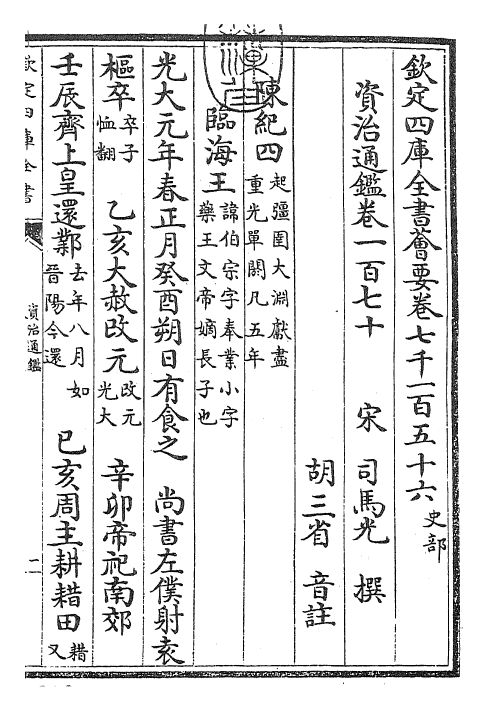 欽定四庫全書薈要卷七千一百五十六史部
資治通鑑卷一百七十　宋　司馬光　撰
胡三省　音註
陳紀四起彊圉大淵獻盡重光單閼凡五年
臨海王諱伯宗字奉業小字藥王文帝嫡長子也
光大元年春正月癸酉朔日有食之　尚書左僕射袁
樞卒卒子恤翻　乙亥大赦改元改元光大　辛卯帝祀南郊
壬辰齊上皇還鄴去年八月如晉陽今還　己亥周主耕耤田耤又
欽定四庫全書
資治通鑑
二